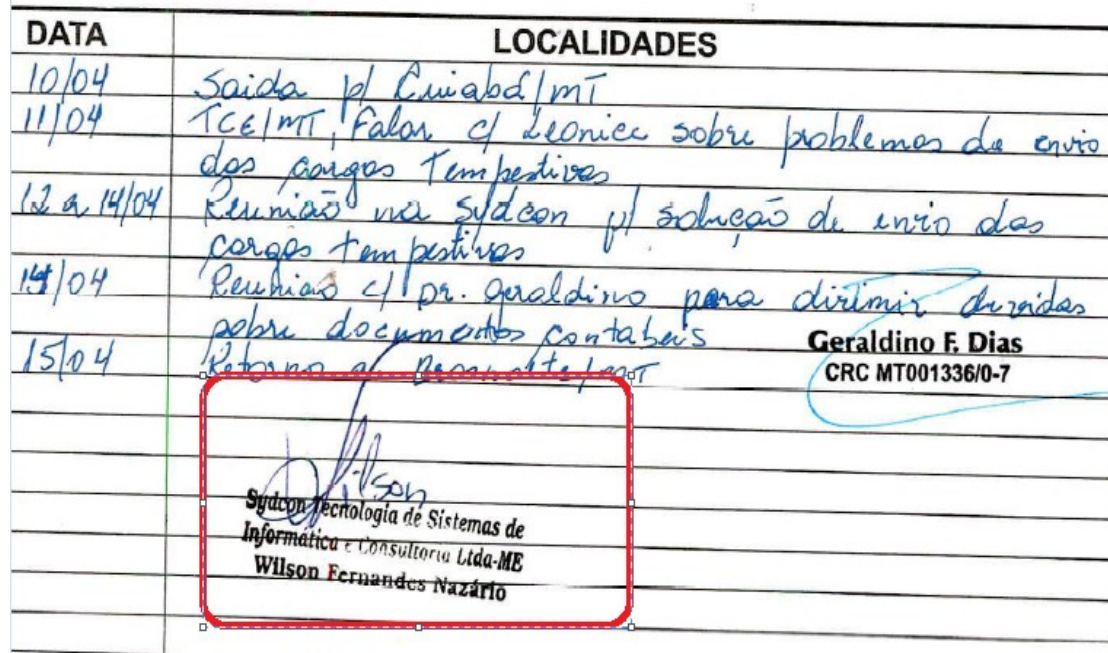 DATA LOCALIDADES
10/04 Saida p/ Cuiabá/MT
11/04 TCE/MT, Falar c/ Leonice sobre problemas de envio
das cargas Tempestivas
12 a 14/04 Reunião na Sydcon p/ solução de envio das
cargas tempestivas
14/04 Reunião c/ Dr. Geraldino para dirimir duvidas
sobre documentos contabeis
Geraldino F. Dias
15/04 Retorno a
CRC MT001336/0-7
Wilson
Sydcon Tecnologia de Sistemas de
Informática e Consultoria Ltda-ME
Wilson Fernandes Nazário